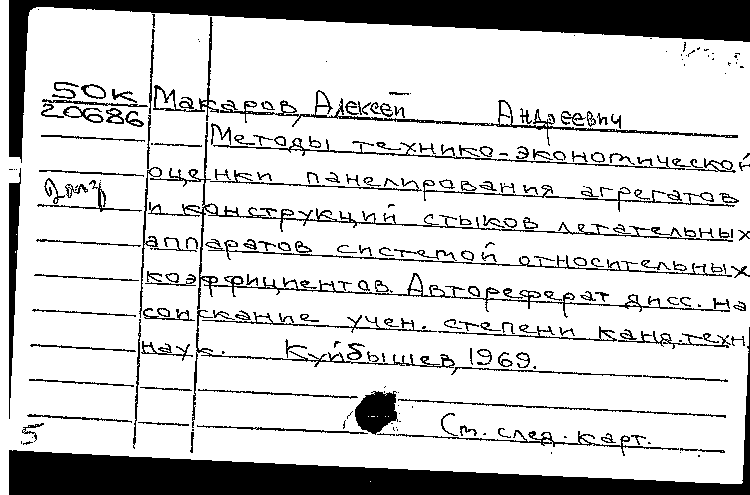 50К Макаров, Алексей Андреевич
20686
Методы технико-экономической
оценки панелирования агрегатов
и конструкций стыков летательных
аппаратов системой относительных
коэффициентов. Автореферат дисс. на
соискание учен. степени канд. техн.
наук. Куйбышев, 1969.
См. след. карт.
5